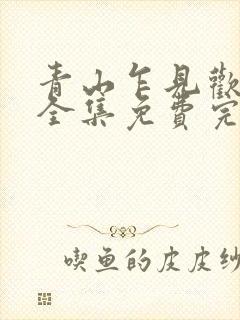 青山乍見歡
全集免費完
喫魚的皮皮紗